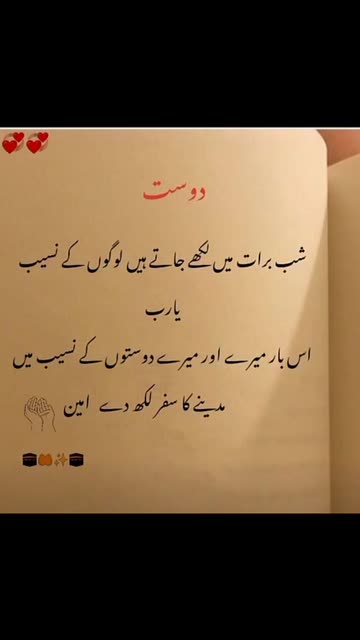 دوست
شب برات میں لکھے جاتے ہیں لوگوں کے نسیب
یارب
اس بار میرے اور میرے دوستوں کے نسیب میں
مدینے کا سفر لکھ دے امین